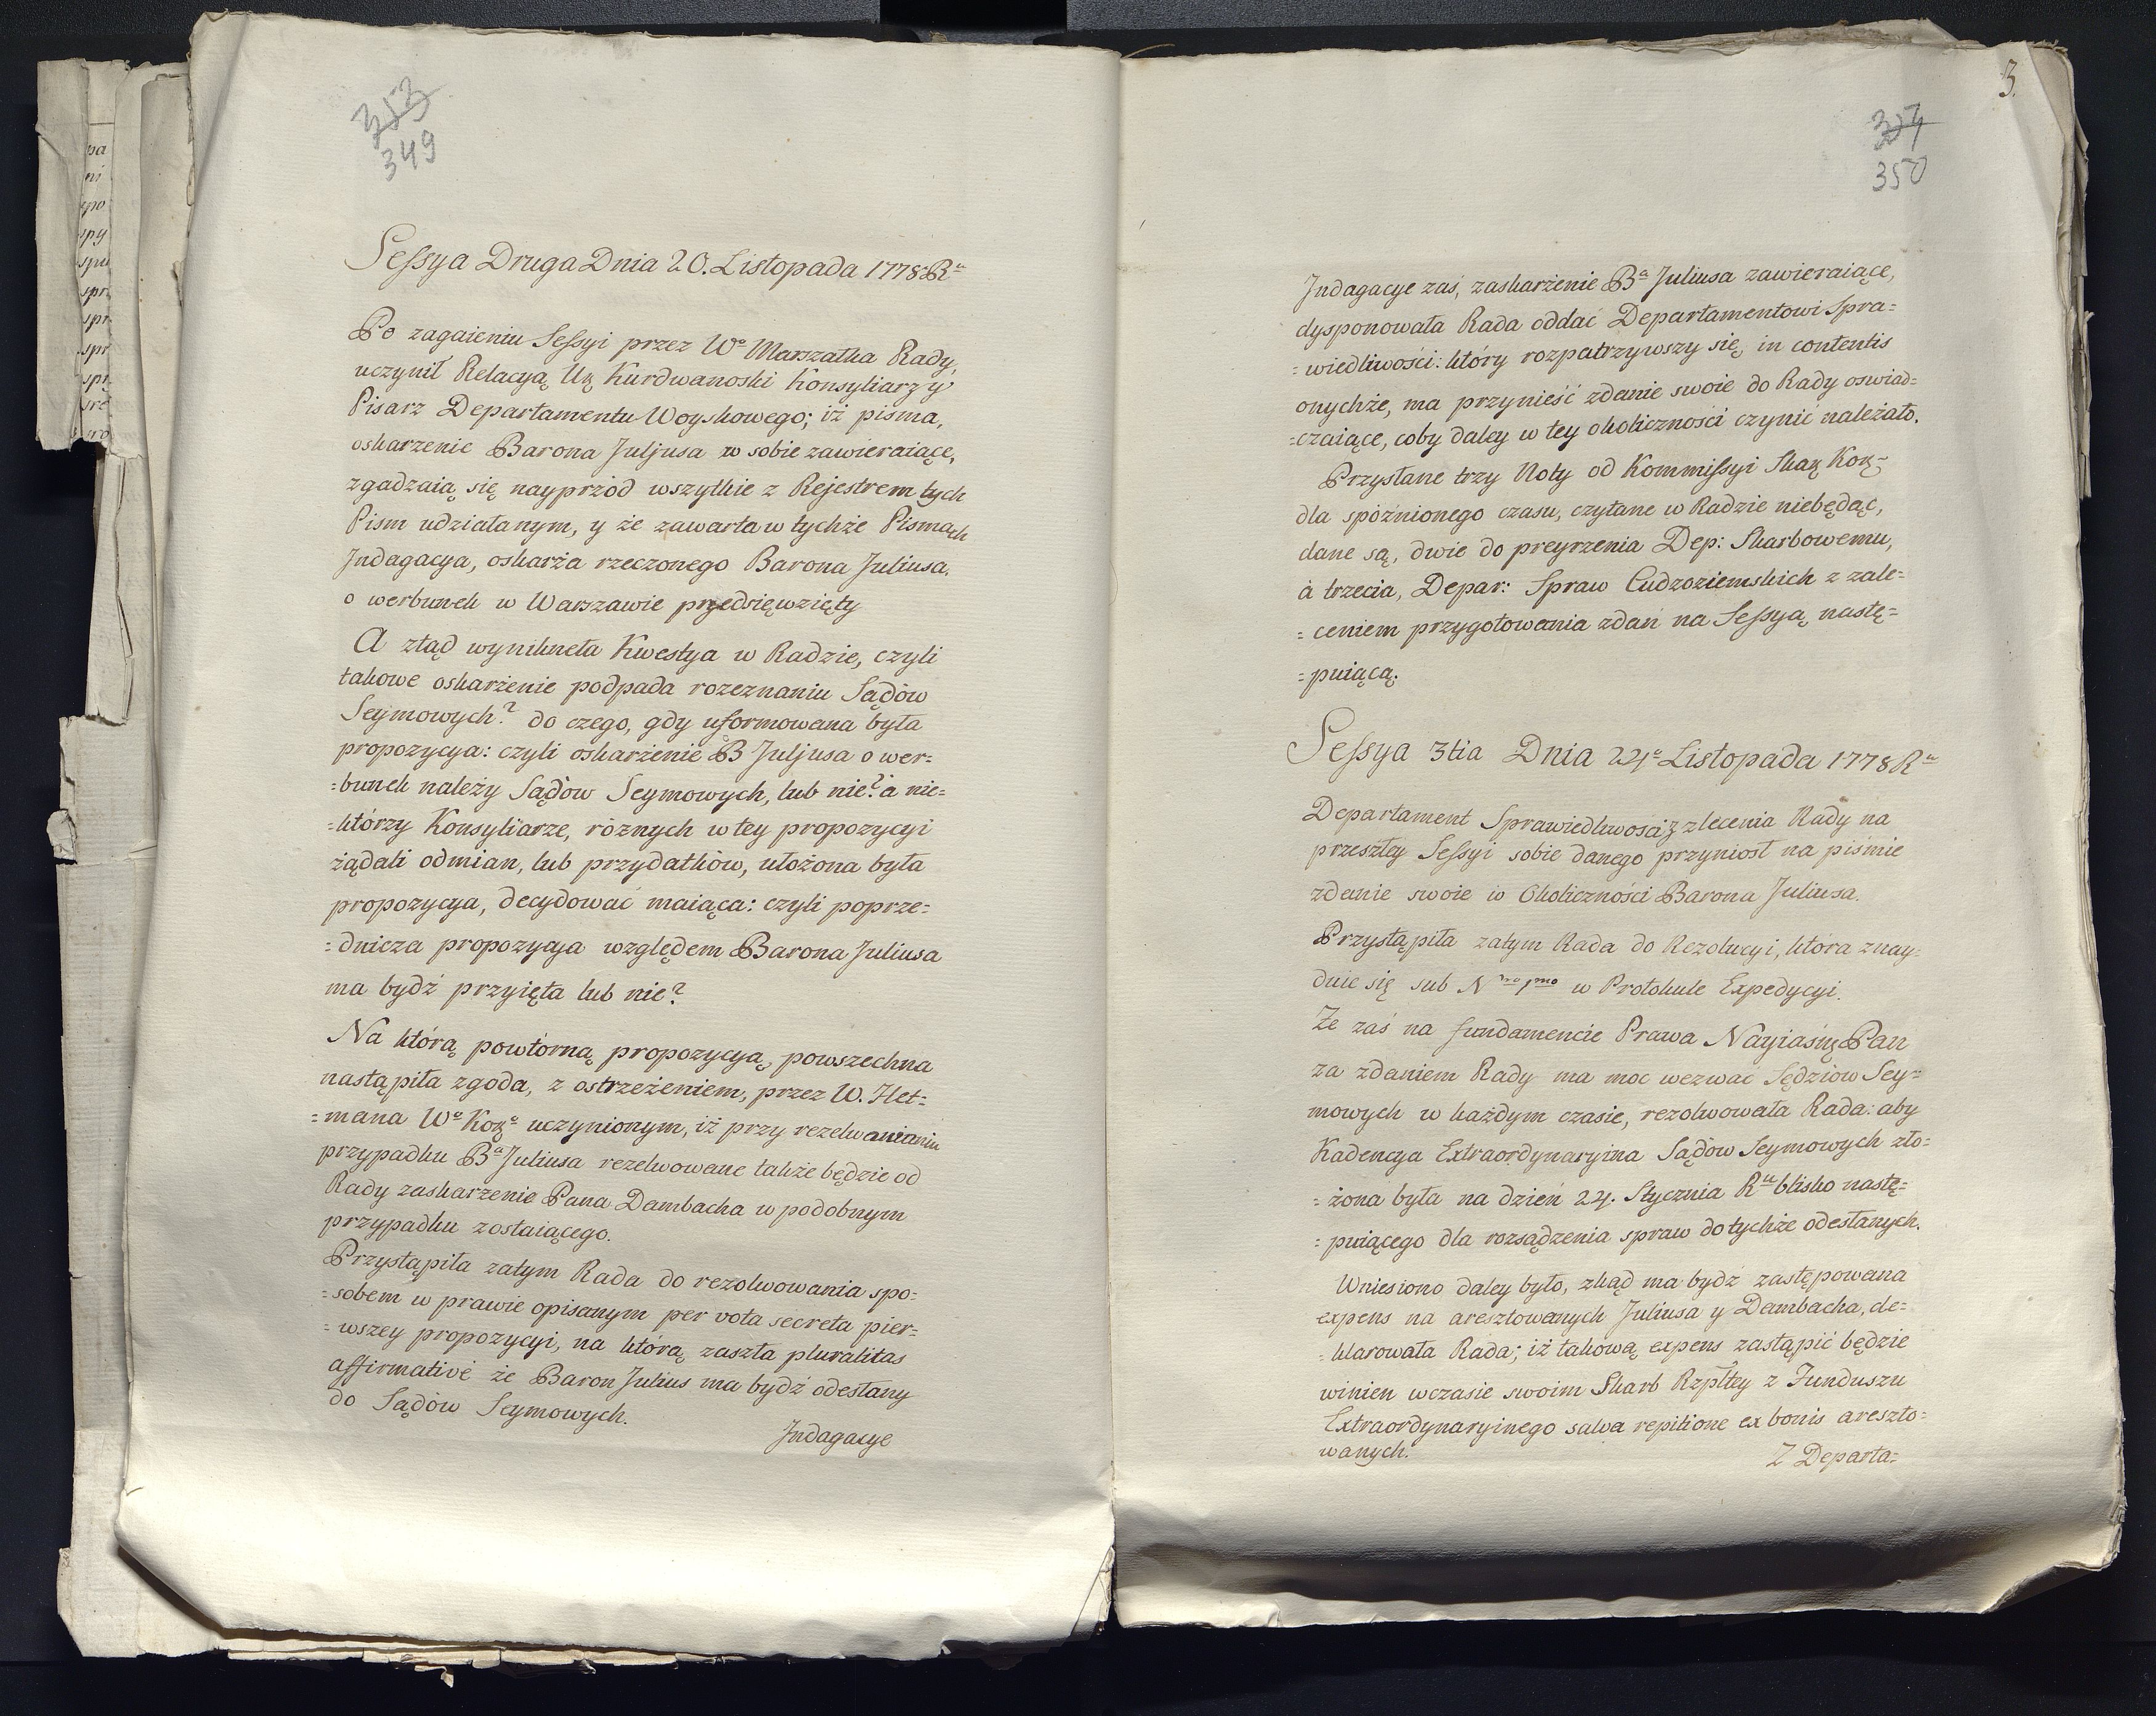 353
349
Sessya Druga Dnia 20. Listopada 1778 Ru
Po zagaieniu Sessyi przez Wo Marszałka Rady,
uczynił Relacyą Ur Kurdwanoski Konsyliarz y
Pisarz Departamentu Woyskowego; iż pisma,
oskarzenie Barona Juljusa w sobie zawieraiące,
zgadzaią się nayprżod wszytkie z Rejestrem tych
Pism udziałanym, y że zawarta w tychże Pismach
Indagacya, oskarża rzeczonego Barona Juliusa.
o werbunek w Warszawie przedsięwzięty
A ztąd wyniknęła Kwestya w Radzie, czyli
takowe oskarżenie podpada rozeznaniu Sądów
Seymowych? do czego, gdy uformowana była
propozycya: czyli oskarżenie B Juljusa o wer=
=bunek należy Sądow Seymowych, lub nie? à nie=
=którzy Konsyliarze, róznych w tey propozycyi
żądali odmian, lub przydatków, ułożona była
propozycya, decydować maiąca: czyli poprze=
=dnicza propozycya względem Barona Juliusa
ma bydź przyięta lub nie?
Na którą powtórną propozycyą, powszechna
nastąpiła zgoda, z ostrzeżeniem, przez W. Het=
=mana Wo Kor o uczynionym, iż przy rezelwowaniu
przypadku Ba Juliusa rezelwowane także będzie od
Rady zaskarzenie Pana Dambacha w podobnym
przypadku zostaiącego.
Przystąpiła zatym Rada do rezolwowania spo=
=sobem w prawie opisanym per vota secreta pier=
=wszey propozycyi, na którą zaszła pluralitas
affirmativè że Baron Julius ma bydź odesłany
do Sądów Seymowych.
Indagacye
3.
354
350
Indagacye zaś, zaskarżenie Ba Juliusa zawieraiące,
dysponowała Rada oddać Departamentowi Spra=
=wiedliwości: który rozpatrzywszy się, in contentis
onychże, ma przynieść zdanie swoie do Rady oswiad=
=czaiące, coby daley w tey okoliczności czynić należało.
Przysłane trzy Noty od Kommissyi Skar Kor=
dla spóźnionego czasu, czytane w Radzie niebędąc,
dane są, dwie do preyrzenia Dep: Skarbowemu,
à trzecia, Depar: Spraw Cudzoziemskich z zale=
=ceniem przygotowania zdań na Sessyą nastę=
=puiącą.
Sessya 3tia Dnia 24o Listopada 1778 Ru
Departament Sprawiedliwości z zlecenia Rady na
przeszłey Sessyi sobie danego przyniosł na piśmie
zdanie swoie w Okoliczności Barona Juliusa.
Przystąpiła zatym Rada do Rezolucyi, która znay=
duie się sub Nro 1mo w Protokule Expedycyi.
Że zaś na fundamencie Prawa Nayiaśn Pan
za zdaniem Rady ma moc wezwać Sędziow Sey=
mowych w każdym czasie, rezolwowała Rada: aby
Kadencya Extraordynaryina Sądów Seymowych zło=
=żona była na dzień 24. Stycznia Ru blisko nastę=
=puiącego dla rozsądzenia spraw do tychże odesłanych.
Wniesiono daley było, zkąd ma bydź zastępowana
expens na aresztowanych Juliusa y Dambacha, de=
=klarowała Rada; iż takową expens zastąpić będzie
winien wczasie swoim Skarb Rzpltey z Funduszu
Extraordynaryinego salva repitione ex bonis areszto=
wanych.
Z Departa=